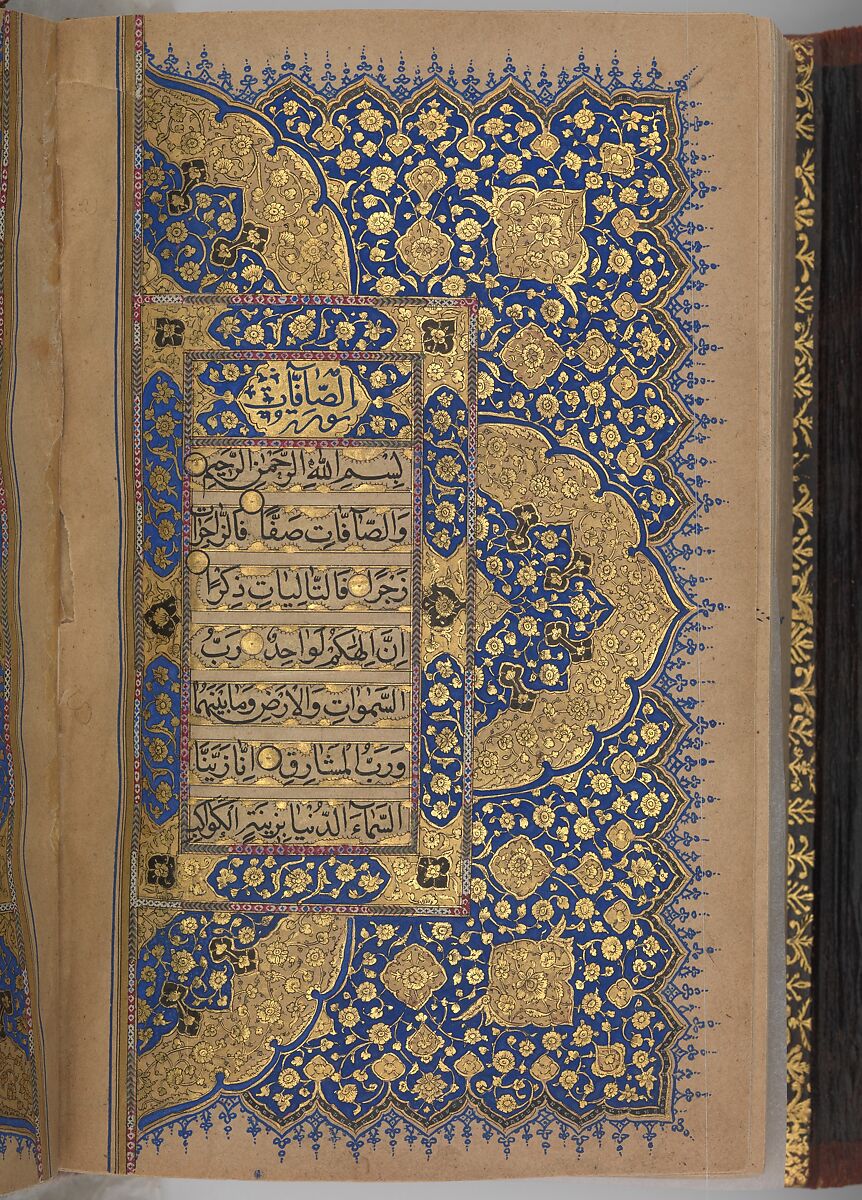 سورة الصآفات
بِسْمِ اللهِ الرَّحْمٰنِ الرَّحِيمِ
وَالصَّآفَّاتِ صَفًّا فَالزَّاجِرَاتِ
زَجْرًا فَالتَّالِيَاتِ ذِكْرًا
اِنَّ اِلٰهَكُمْ لَوَاحِدٌ رَبُّ
السَّمٰوَاتِ وَالْاَرْضِ وَمَا بَيْنَهُمَا
وَرَبُّ الْمَشَارِقِ اِنَّا زَيَّنَّا
السَّمَآءَ الدُّنْيَا بِزِينَةٍ الْكَوَاكِبِ